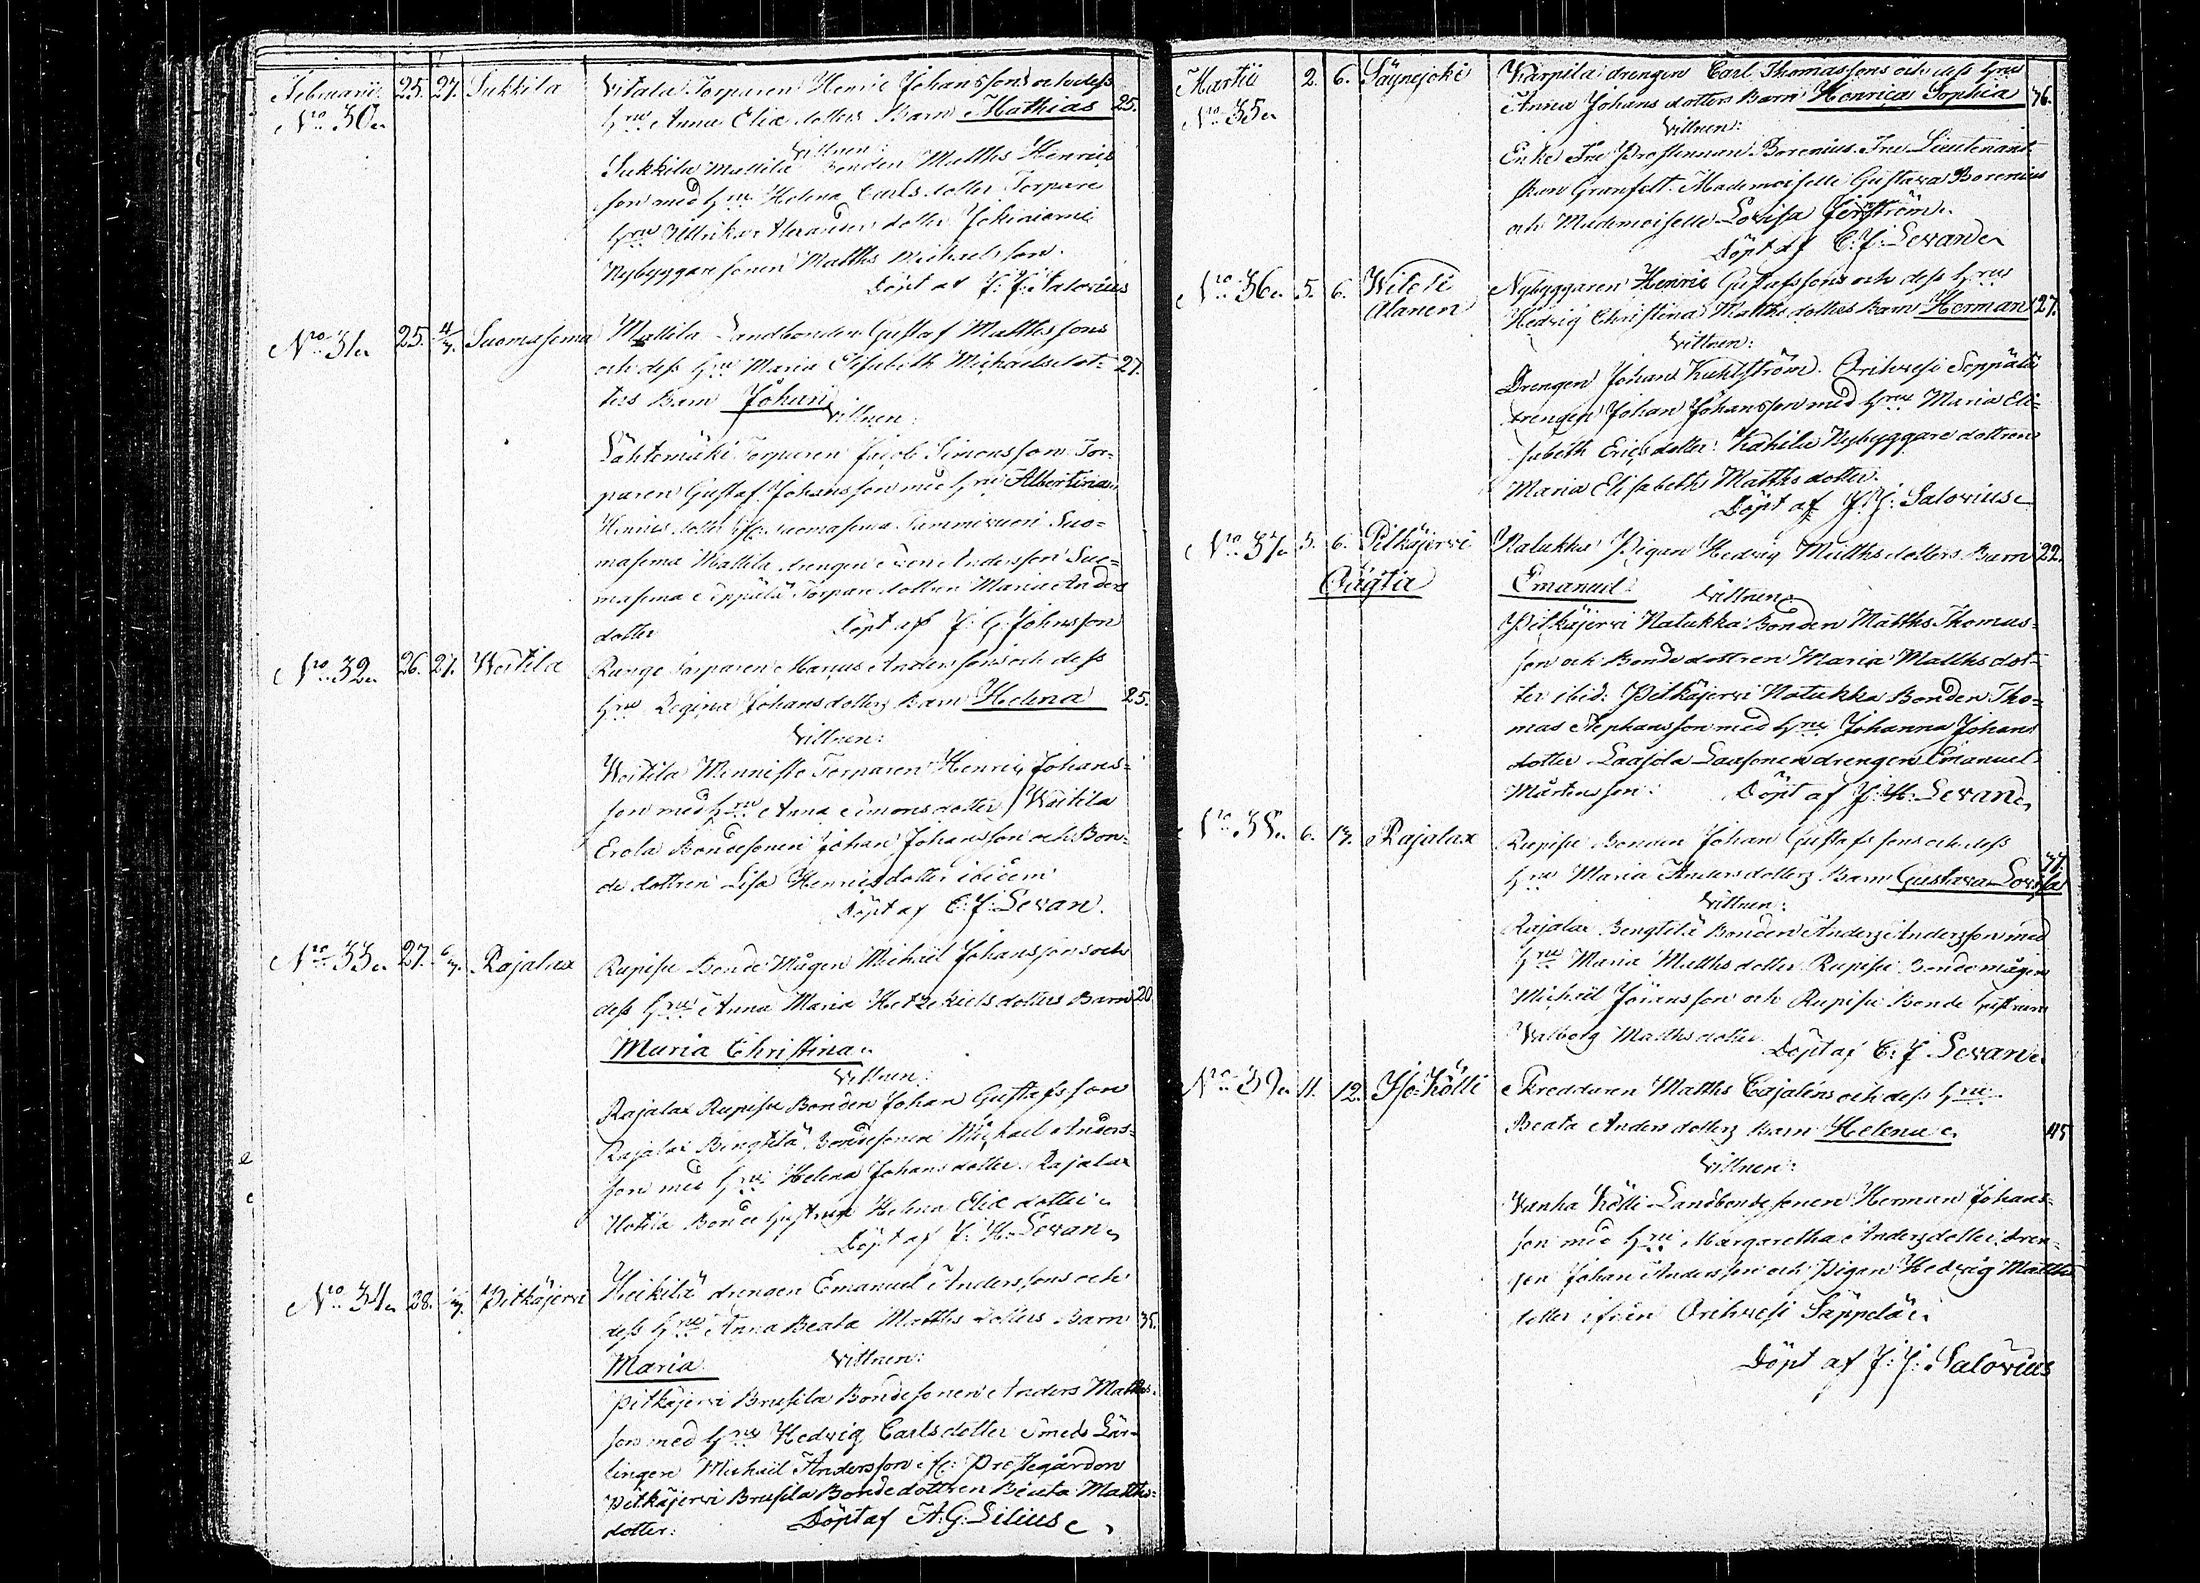 Februarii 25. 27. Sukkila Uitala Torparen Henric Johanssons och dess
No 30. Hru Anna Eliæ dotters Barn Mathias 25.
Vittnen:
Sukkila Mattila Bonden Matths Henrics
son med Hru Helena Carls dotter Torpare
Hru Ullrika Alexanders dotter
Nybyggare sonen Matths Michaelsson.
Döpt af J: J: Salovius
No 31. 25. 4/3. Suomasema Mattila Landbonden Gustaf Matthssons
och dess Hru Maria Elisabeth Michaelsdot- 27.
ters Barn Johan
Vittnen:
Lähtemäki Torparen Jacob Simonsson Tor-
paren Gustaf Johansson med Hru Albertina
Henrics dotter Suomasema Suo-
masema Mattila drengen Sven Andersson Suo-
masema Seppälä Torpare dottren Maria Anders
dotter Döpt af J: G: Johnsson
No 32. 26. 27. Woitila Runge Torparen Marcus Anderssons och dess
Hru Regina Johansdotters Barn Helena 25.
Vittnen:
Woitila Menniste Torparen Henric Johans-
son med Hru Anna Simonsdotter Woitila
Erola Bondesonen Johan Johansson och Bon-
de dottren Lisa Henricsdotter ibidem
Döpt af C: J: Levan.
No 33. 27. 6/3. Rajalax Rupisu Bonde Mågen Michäel Johanssons och
dess Hru Anna Maria Hetzekielsdotters Barn 20.
Maria Christina
Vittnen:
Rajalax Rupisu Bonden Johan Gustafsson
Rajalax Bengtilä Bondesonen Michael Anders-
son med Hru Helena Johansdotter. Rajalax
Hotila Bonde Hustrun Helena Eliæ dotter
Döpt af J: H: Levan
No 34. 28. Pitkäjervi Heikilä drengen Emanuel Anderssons och
dess Hru Anna Beata Matths dotters Barn 35.
Maria Vittnen:
Pitkäjervi Brusila Bondesonen Anders Matths-
son med Hru Hedvig Carlsdotter Smeds Lär-
lingen Michäel Andersson Prostegården
Pitkäjervi Brusila Bondedottren Beata Matths-
dotter: Döpt af A. G. Lilius
Martii 2. 6. Säynejoki Karpila drengen Carl Thomassons och dess Hru
No 35. Anna Johans dotters Barn Henrica Sophia 36.
Vittnen:
Enke Fru Prostinnan Borenius Fru Lieutenant
skan Granfelt. Mademoiselle Gustava Borenius
och Mademoiselle Lovisa
Döpt af C: J: Levan
No 36. 5. 6. Nybyggaren Henric Gustafssons och dess Hru
Alanen Hedvig Christina Matths dotters Barn Herman 27.
Vittnen:
Drengen Johan Kuhlström. Orihvesi Seppälä
drengen Johan Johansson med Hru Maria Eli-
sabeth Ericsdotter: Kahila Nybyggare dottren
Maria Elisabeth Matthsdotter.
Döpt af J: J: Salovius
No 37. 5. 6. Pitkäjervi Natukka Pigan Hedvig Matthsdotters Barn 22.
Oägta Emanuel.
Vittnen
Pitkäjervi Natukka Bonden Matths Thomas-
son och Bondedottren Maria Matthsdot-
ter ibid: Pitkäjervi Natukka Bonden Tho-
mas Stephansson med Hru Johanna Johans
dotter Laasola Laasonen drengen Emanuel
Mårtensson: Döpt af J: H: Levan
No 38. 6. 13. Rajalax Rupisu Bonden Johan Gustafssons och dess
Hru Maria Andersdotters Barn Gustava Lovisa 37.
Vittnen:
Rajalax Bengtilä Bonden Anders Andersson med
Hru Maria Matthsdotter Rupisu Bondemågen
Michäel Johansson och Rupisu Bonde hustrun
Walborg Matthsdotter Döpt af C: J. Levan
No 39. 11. 12. Iso-Kölli Skreddaren Matths Cajaléns och dess Hru
Beata Andersdotters Barn Helena 45
Vittnen:
Wanha Kölli Landbondesonen Herman Johans-
son med Hru Margaretha Andersdotter, dren-
gen Johan Andersson och Pigan Hedvig Matths
dotter ifrån Orihvesi Säppelä
Döpt af J: J: Salovius